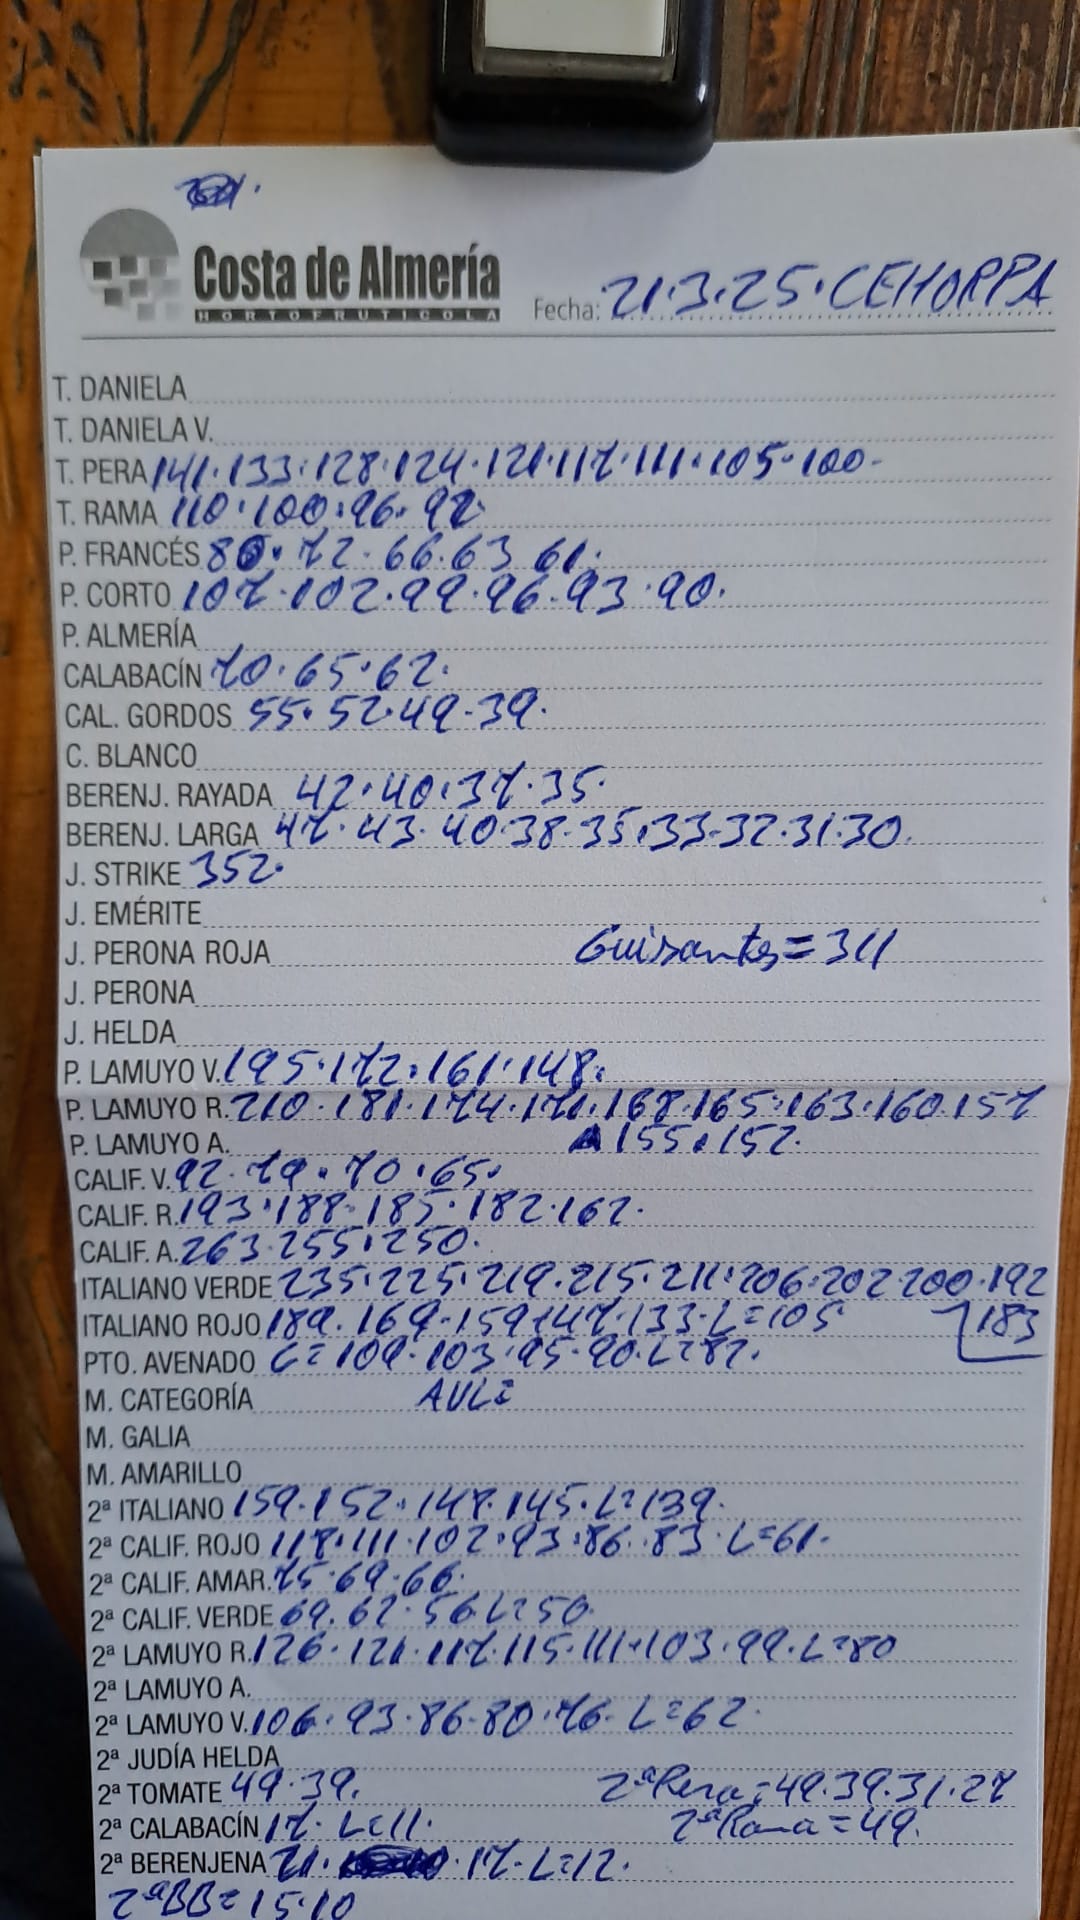 Costa de Almería
HORTOFRUTICOLA
Fecha: 21.3.25.CEHORPA
T. DANIELA
T. DANIELA V.
T. PERA 141.133.128.124.121.117.111.105.100-
T. RAMA 110.100.96.92
P. FRANCÉS 80.72.66.63 61.
P. CORTO 107.102.99.96.93.90.
P. ALMERÍA
CALABACÍN 70.65.62.
CAL. GORDOS 55.52.49-39.
C. BLANCO
BERENJ. RAYADA 42.40.37.35.
BERENJ. LARGA 47.43.40.38-35.33-32.31.30.
J. STRIKE 352.
J. EMÉRITE
J. PERONA ROJA Guisantes=311
J. PERONA
J. HELDA
P. LAMUYO V. 195.172.161.148.
P. LAMUYO R. 210.181.174.171.168.165.163.160.157
P. LAMUYO A. 155.152.
CALIF. V. 92.79.70.65.
CALIF. R. 193.188-185.182.162.
CALIF. A. 263.255.250.
ITALIANO VERDE 235.225.219.215.211.206.202 200.192
ITALIANO ROJO 189.169-159.147.133-L=105 183
PTO. AVENADO L=109.103.95-90.L=87.
M. CATEGORÍA AUL=
M. GALIA
M. AMARILLO
2ª ITALIANO 159.152.147.145.L=139.
2ª CALIF. ROJO 118.111.102.93.86.83.L=61.
2ª CALIF. AMAR. 75.69.66.
2ª CALIF. VERDE 69.62.56.L=50.
2ª LAMUYO R. 126.121.117.115.111.103.99.L=80
2ª LAMUYO A.
2ª LAMUYO V. 106.93.86-80.76.L=62.
2ª JUDÍA HELDA
2ª TOMATE 49.39. 2ªPera=49.39.31.27
2ª CALABACÍN 17.L=11. 2ªRama=49.
2ª BERENJENA 21. .17.L=12.
2ªBB=15.10